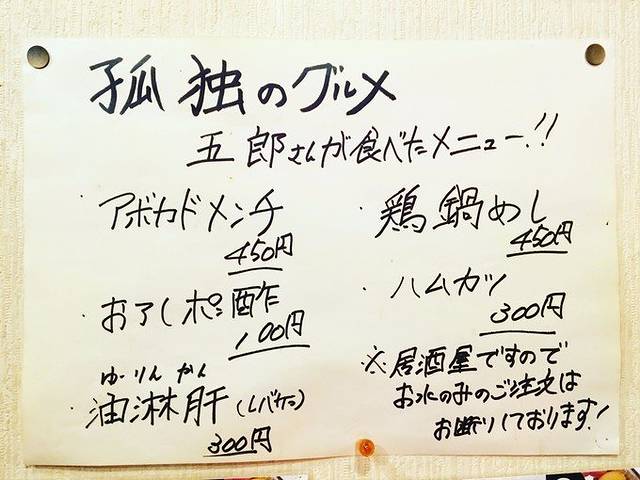 孤独のグルメ
五郎さんが食べたメニュー!!
・アボカドメンチ
450円
・おろしポン酢
100円
ゆーりんかん
・油淋肝(レバケン)
300円
・鶏鍋めし
450円
・ハムカツ
300円
※居酒屋ですので
お水のみのご注文は
お断りしております!